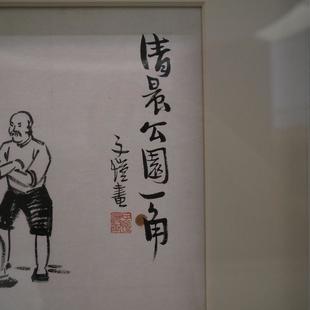 清晨公園一角
文愷畫